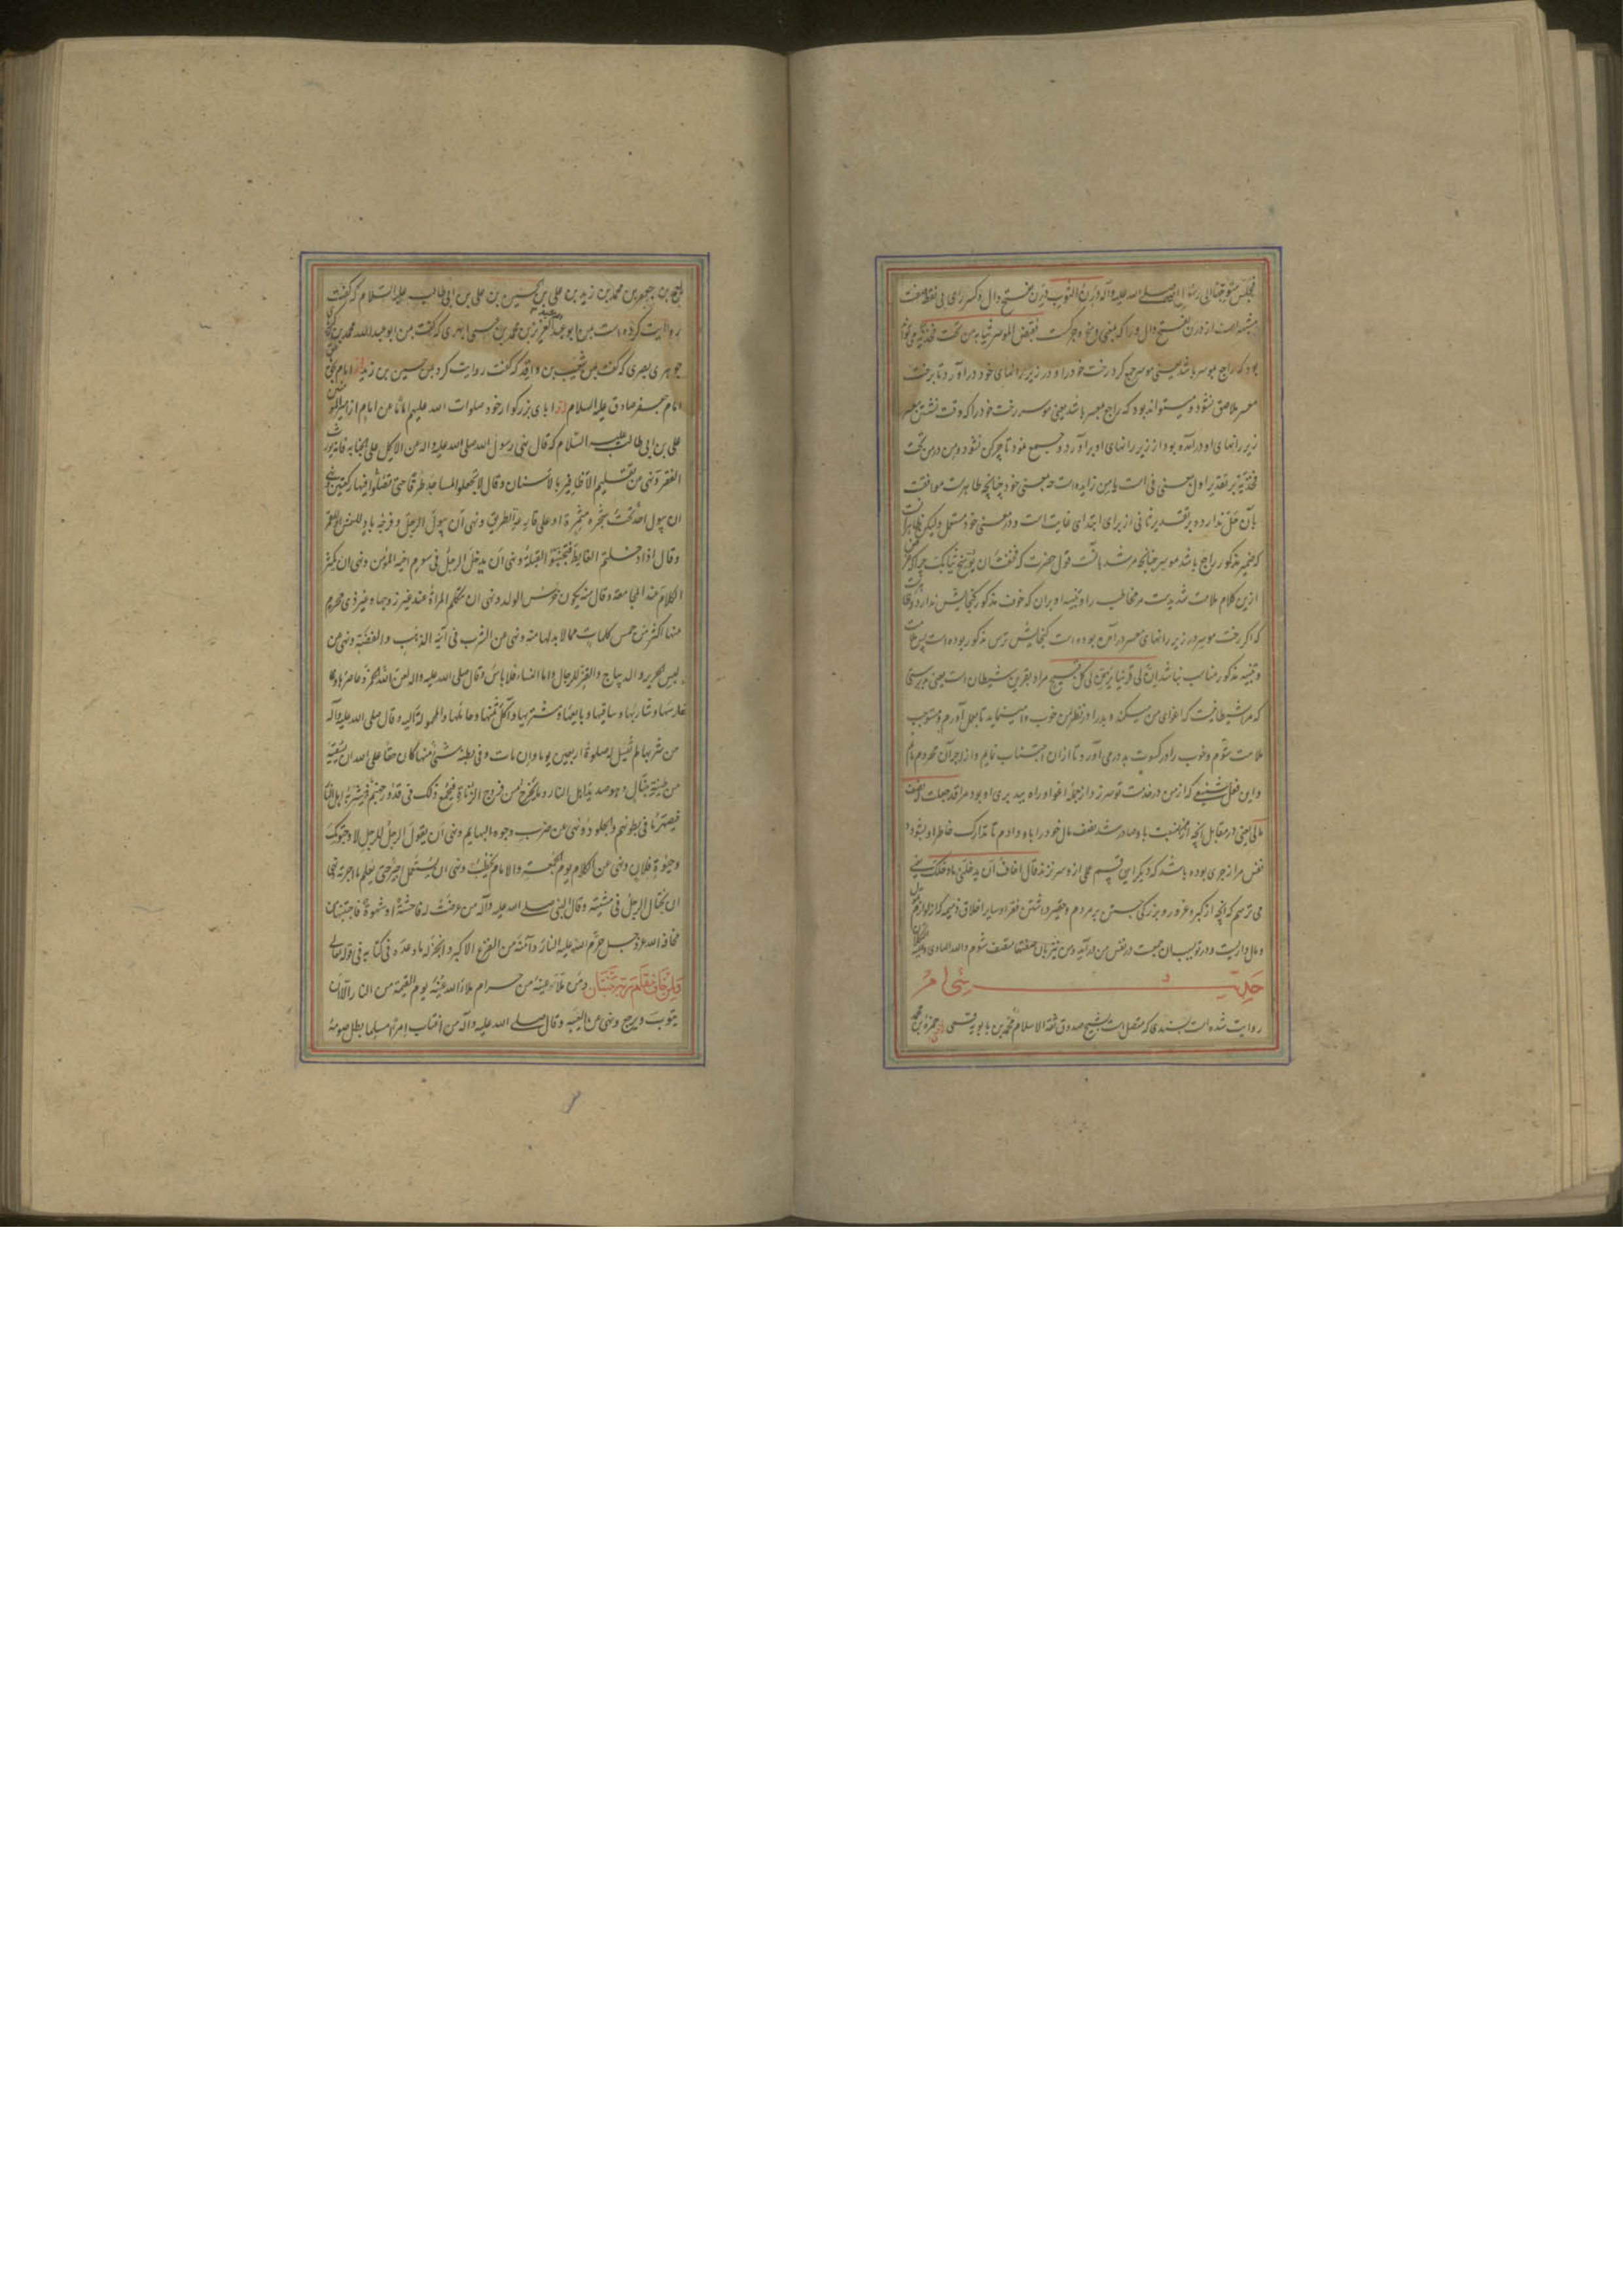 فجلس متوجها الی رسول الله صلی الله علیه وآله درن الثوب درن بفتح دال و کسر رای بی نقطه صفت
مشبهه است از درن بفتح دال و را که بمعنی وسخ و چرکست فقبض الموسر ثیابه من تحت فخذیه می تواند
بود که راجع بموسر باشد یعنی موسر جمع کرد رخت خود را و در زیر رانهای خود درآورد تا برخت
معسر ملاصق نشود و میتواند بود که راجع بمعسر باشد یعنی موسر رخت خود را که وقت نشستن معسر
زیر رانهای او درآمده بود از زیر رانهای او برآورد و جمع نمود تا چرکن نشود و من در من تحت
فخذیه بر تقدیر اول بمعنی فی است یا من زایده است چه بمعنی خود چنانچه ظاهرست موافقت
بآن محل ندارد و بر تقدیر ثانی از برای ابتدای غایت است و در معنی خود مستعمل ولیکن ظاهر آن
که ضمیر مذکور راجع باشد موسر چنانچه مرشد باآنست قول حضرت که فخفت ان یوسخ ثیابک چه
ازین کلام ملامت شدیدست مر مخاطب را و تنبیه او بر آن که خوف مذکور گنجایش ندارد
که اگر رخت موسر در زیر رانهای معسر درآمده بوده است گنجایش ترس مذکور بوده است پس ملامت
و تنبیه مذکور مناسب نباشد ان لی قرینا یزین لی کل قبیح مراد بقرین شیطان است یعنی بدرستی
که مرا شیطانیست که اغوای من میکند و بد را در نظر من خوب وا مینماید تا بعمل آورم و مستوجب
ملامت شوم و خوب را در کسوت بد در می آورد تا از آن اجتناب نمایم و از اجر آن محروم مانم
و این فعل شنیع که از من در خدمت تو سر زد از جمله اغوا و راه بد بری او بود مرا قد جعلت له نصف
مالی یعنی در مقابل آنچه از من نسبت باو صادر شد نصف مال خود را باو دادم تا تدارک خاطر او بشود و
نفس مرا زجری بوده باشد که دیگر این قسم عملی ازو سر نزند قال اخاف ان یدخلنی ما دخلک یعنی
می ترسم که آنچه از کبر و غرور و بزرگی جستن بر مردم و حقیر داشتن فقرا و سایر اخلاق ذمیمه که از لوازم
و مال داریست و در تو بسبب آن جمعیت در نفس من درآید و من نیز بآن صفتها متصف شوم والله الهادی
حدیث سی ام
روایت شده است بسندی که متصل است بشیخ صدوق ثقة الاسلام محمد بن بابویه قمی از حمزة بن محمد
بن جعفر بن محمد بن زید بن علی بن الحسین بن علی بن ابی طالب علیه السلام که گفت
روایت کرده است بمن ابو عبدالله عبدالعزیز بن محمد بن عیسی ابهری که گفت بمن ابو عبدالله محمد بن زکریا
جوهری بصری که گفت بمن شعیب بن واقد که گفت روایت کرد بمن حسین بن زید از امام بحق
امام جعفر صادق علیه السلام از آبای بزرگوار خود صلوات الله علیهم اماما عن امام از امیرالمؤمنین
علی بن ابی طالب علیه السلام که قال نهی رسول الله صلی الله علیه واله عن الاکل علی الجنابه فانه یورث
الفقر و نهی من تقلیم الاظافیر بالاسنان و قال لا تجعلوا المساجد طرقا حتی تصلوا فیها رکعتین و نهی
ان یبول احد تحت شجرة مثمرة او علی قارعة الطریق و نهی ان یبول الرجل و فرجه باد للشمس او للقمر
و قال اذا دخلتم الغایط فتجنبوا القبلة و نهی ان یدخل الرجل فی سوم اخیه المؤمن و نهی ان یکثر
الکلام عند المجامعة و قال منه یکون خرس الولد و نهی ان تتکلم المراة عند غیر زوجها و غیر ذی محرم
منها اکثر من خمس کلمات مما لا بد لها منه و نهی عن الشرب فی آنیة الذهب والفضة و نهی من
لبس الحریر والدیباج والقز للرجال واما النساء فلا باس و قال صلی الله علیه واله لعن الله الخمر و عاصرها و
غارسها و شاربها و ساقیها و بایعها و مشتریها و آکل ثمنها و حاملها والمحمولة الیه و قال صلی الله علیه وآله
من شربها لم تقبل له صلوة اربعین یوما و ان مات و فی بطنه شیء منها کان حقا علی الله ان یسقیه
من طینة خبال و هو صدید اهل النار و ما یخرج من فروج الزناة فیجمع ذلک فی قدور جهنم فیشربه اهل النار
فیصهر به ما فی بطونهم والجلود و نهی عن ضرب وجوه البهایم و نهی ان یقول الرجل للرجل لا و حیوتک
و حیوة فلان و نهی عن الکلام یوم الجمعة والامام یخطب و نهی ان یستعمل اجیر حتی یعلم ما اجرته نهی
ان یختال الرجل فی مشیته و قال النبی صلی الله علیه وآله من عرضت له فاحشة او شهوة فاجتنبها من
مخافة الله عز و جل حرم الله علیه النار و آمنه من الفزع الاکبر و انجز له ما وعده فی کتابه فی قوله تعالی
و لمن خاف مقام ربه جنتان و من ملأ عینه من حرام ملأ الله عینه یوم القیمة من النار الا ان
یتوب و یرجع و نهی عن الغیبة و قال صلی الله علیه وآله من اغتاب امرأ مسلما بطل صومه